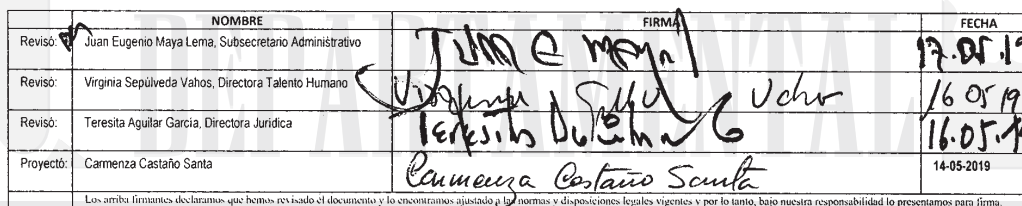 NOMBRE FIRMA FECHA
Revisó: Juan Eugenio Maya Lema, Subsecretario Administrativo Juan E Maya 17.05.19
Revisó: Virginia Sepúlveda Vahos, Directora Talento Humano Virginia 16 05 19
Revisó: Teresita Aguilar García, Directora Jurídica Teresita Aguilar G 16.05.19
Proyectó: Carmenza Castaño Santa Carmenza Castaño Santa 14-05-2019
Los arriba firmantes declaramos que hemos revisado el documento y lo encontramos ajustado a las normas y disposiciones legales vigentes y por lo tanto, bajo nuestra responsabilidad lo presentamos para firma.